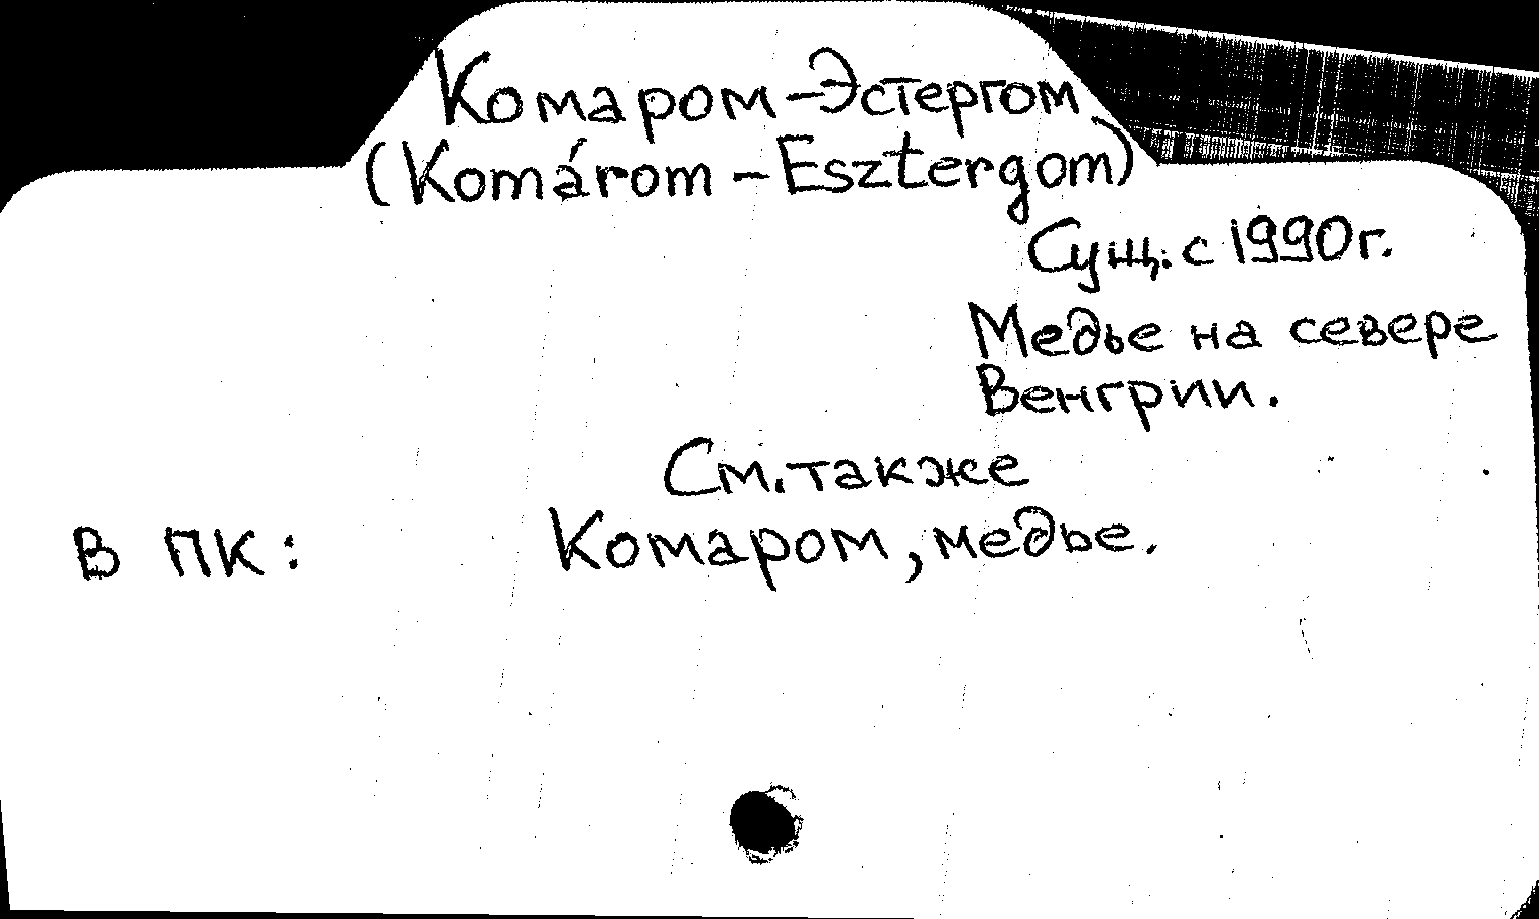 Комаром-Эстергом
(Komárom - Esztergom)
Сущ. с 1990г.
Медье на севере
Венгрии.
См. также
В ПК: Комаром, медье.